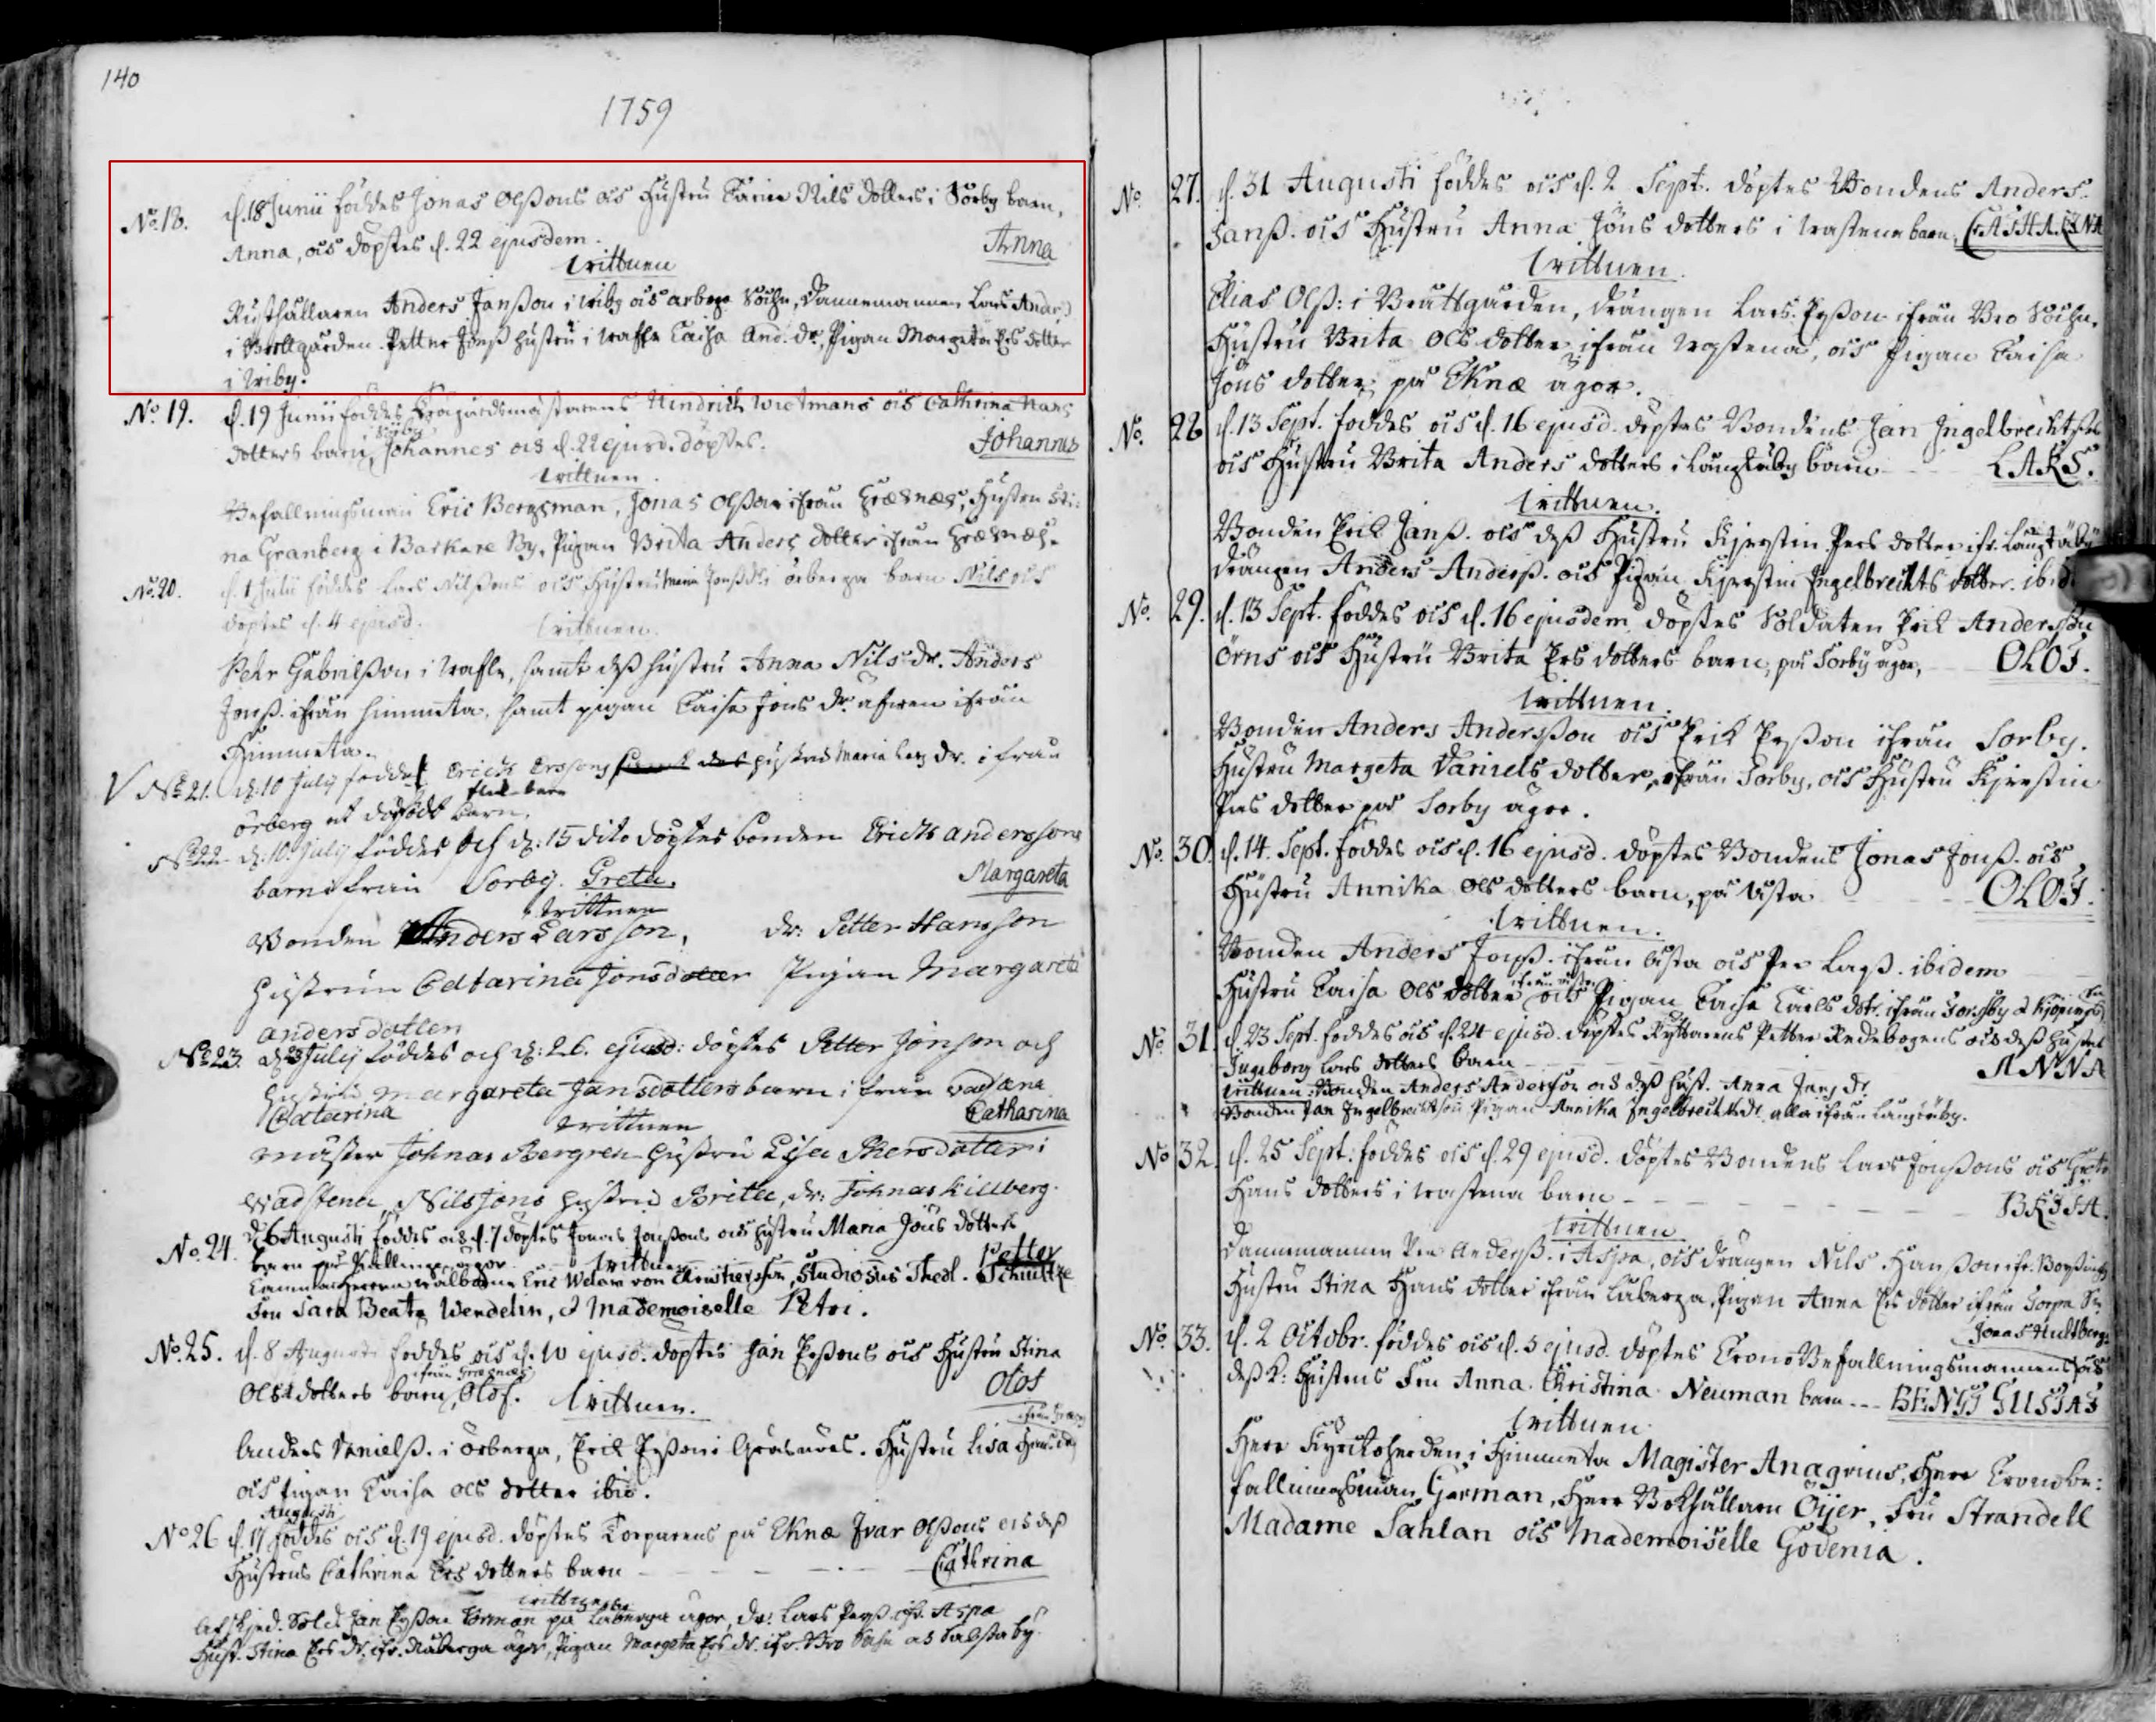 140
1759
No. 18. d. 18 Junii föddes Jonas Olßons ock Hustru Karin Nils dotters i Sörby barn,
Anna, ock döptes d. 22 ejusdem. Anna
Wittnen
Rusthållaren Anders Janßon i Wiby ock Arboga Sochn, Dannemannen Lars Anders
i Brottgården. Petter Jonß hustru i Cajsa And. dr, Pigan Margeta Ers dotter
i Wiby.
No. 19. d. 19 Junii föddes Hindrich Wietmans ock Cathrina Hans
dotters barn i Johannes ock d. 22 ejusd. döptes. Johannes
Wittnen
Befallningsman Eric Bergsman, Jonas Olßon ifrån Græsnæs, Hustru Sti-
na Granberg i Barkare By, Pigan Brita Anders dotter ifrån Græsnæs.
No. 20. d. 1 Julii föddes Lars Nilßons ock Hustru Maria Jonß dr i Örberga barn Nils ock
döptes d. 4 ejusd. Wittnen.
Pehr Gabrielßon i samt deß hustru Anna Nils dr. Anders
Jonß. ifrån Himmeta, samt pigan Caisa Jons dr. äfwen ifrån
Himmeta.
No 21. d: 10 July födde Erich Erssons hustru Maria Lars dr. ifrån
Örberg et dödfödt barn.
No 22. d: 10 July föddes och d: 15 dito döptes bonden Erich Anderssons
barn ifrån Sörby. Greta. Margareta
Wittnen
Bonden Anders Larsson, dr: Petter Hansson
Hustrun Catarina Jonsdotter Pigan Margareta
Andersdotter
No 23. d: 23 July föddes och d: 26. ejusd: döptes Petter Jonson och
hustru Margareta Jansdotters barn ifrån
Catarina Catharina
Wittnen
Mäster Johnas Bergren Hustru Lisa Phersdotter i
Wadstena, Nils Jons hustru Brita, dr: Johnas Killberg.
No. 24. d. 6 Augusti föddes ock d. 7 döptes Jonas Jonßons ock hustru Maria Jöns dotters
barn på ägor. Wittnen Petter
Eric Welam von Christiersson, Studiosus Theol. Schultze
Fru Sara Beata Wendelin, & Mademoiselle Petri.
No. 25. d. 8 Augusti föddes ock d. 10 ejusd. döptes Jan Perßons ock Hustru Stina
Ols dotters barn, ifrån Græsnæs Olof. Wittnen. Olof
Anders Danielß. i Örberga, Erik Erßon i Græsnæs. Hustru Lisa Hans dr
ock Pigan Caisa Ols dotter ibid.
Augusti
No 26 d. 17 föddes ock d. 19 ejusd. döptes Torparens på Eknæ Ivar Olßons ock deß
Hustrus Cathrina Ers dotters barn Cathrina
Wittnen
Afskjed. Sold. Jan Erßon Törman på Låberga ägor, dr: Lars Perß. ifr. Aspa
Hust. Stina Ers dr. ifr. Råberga ägor, Pigan Margeta Ers dr. ifr. Bro Sochn
No. 27. d. 31 Augusti föddes ock d. 2 Sept. döptes Bondens Anders
Janß. ock Hustru Anna Jöns dotters i Wastena barn,
Wittnen.
Elias Olß: i Brattgården, Drängen Lars Erßon ifrån Bro Sochn.
Hustru Brita Ols dotter ifrån Wastena, ock Pigan Caisa
Jöns dotter på Eknæ ägor.
No. 28 d. 13 Sept. föddes ock d. 16 ejusd. döptes Bondens Jan Ingelbrechtsons
ock Hustru Brita Anders dotters i Långtäby barn LARS.
Wittnen.
Bonden Erik Janß. ock deß Hustru Kjerstin Pers dotter ifr. Långtäby
Drängen Anders Anderß. ock Pigan Kjerstin Ingelbrechts dotter. ibid
No. 29. d. 13 Sept. föddes ock d. 16 ejusdem döptes Soldaten Erik Anderßon
Örns ock Hustru Brita Ers dotters barn, på Sörby ägor, OLOF.
Wittnen.
Bonden Anders Anderßon ock Erik Erßon ifrån Sörby.
Hustru Margeta Daniels dotter, ifrån Sörby, ock Hustru Kjerstin
Pers dotter på Sörby ägor.
No. 30. d. 14. Sept. föddes ock d. 16 ejusd. döptes Bondens Jonas Jonß. ock
Hustru Annika Ols dotters barn, på Åsta OLOF.
Wittnen.
Bonden Anders Jonß. ifrån Åsta ock Per Larß. ibidem
Hustru Caisa Ols dotter ock Pigan Caisa Carls dotr. ifrån
No. 31. d. 23 Sept. föddes ock d. 24 ejusd. döptes Ryttarens Petter Redebogens ock deß hustrus
Ingeborg Lars dotters barn ANNA
Wittnen: Bonden Anders Anderßon ock deß hust. Anna Jans dr
Bonden Jan Ingelbrechtßon Pigan Annika Ingelbrechts dr. alla ifrån Långtäby.
No 32. d. 25 Sept: föddes ock d. 29 ejusd. döptes Bondens Lars Jonßons ock Greta
Hans dotters i Wastena barn BRITA.
Wittnen
Dannemannen Per Anderß. i Aspa, ock Drängen Nils Hanßon
Hustru Stina Hans dotter ifrån Låberga, Pigan Anna Ers dotter ifrån
Jonas Hultbergs
No. 33. d. 2 Octobr. föddes ock d. 5 ejusd. döptes Crono Befallningsmannens ock
deß K: Hustrus Fru Anna Christina Neuman barn BENGT GUSTAF
Wittnen
Herr Kyrkoherden i Himmeta Magister Anagrius, Herr Cronobe-
fallningsman German, Herr Bokhållaren Öijer, Fru Strandell
Madame Sahlan ock Mademoiselle Godenia.